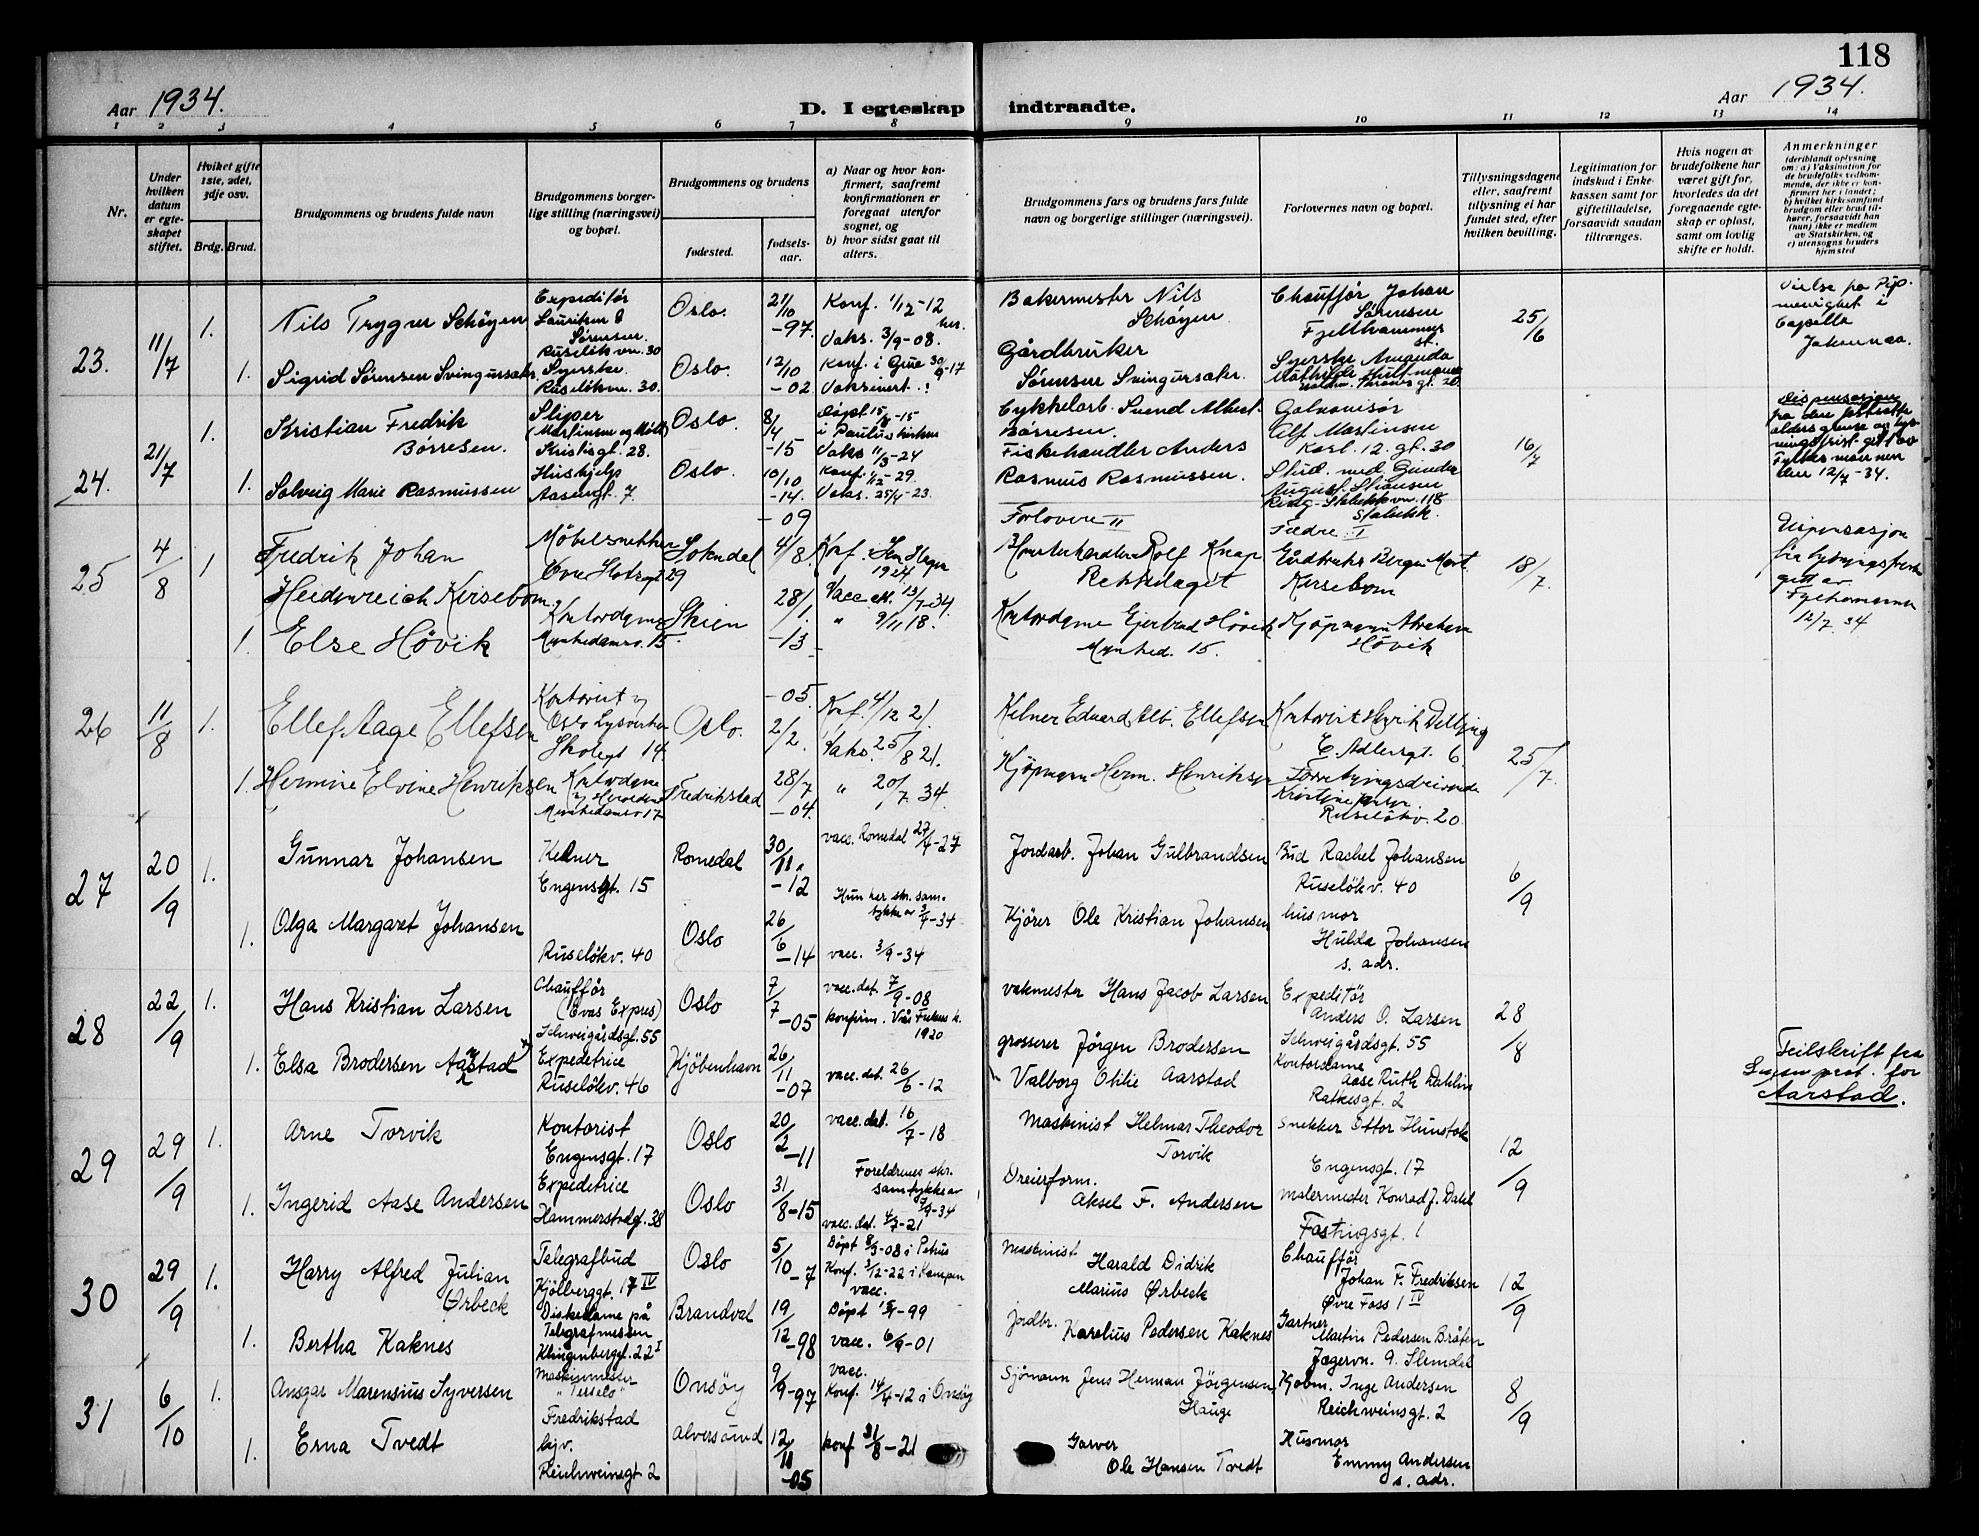 118
Aar 1934.
D. I egteskap indtraadte.
Aar 1934.
1 2 3 4 5 6 7 8 9 10 11 12 13 14
Nr.
Under hvilken datum er egteskapet stiftet.
Hvilket gifte 1ste, 2det, 3dje osv.
Brdg. Brud.
Brudgommens og brudens fulde navn
Brudgommens borgerlige stilling (næringsvei) og bopæl.
Brudgommens og brudens
fødested.
fødselsaar.
a) Naar og hvor konfirmert, saafremt konfirmationen er foregaat utenfor sognet, og
b) hvor sidst gaat til alters.
Brudgommens fars og brudens fars fulde navn og borgerlige stillinger (næringsvei).
Forlovernes navn og bopæl.
Tillysningsdagene eller, saafremt tillysning ei har fundet sted, efter hvilken bevilling.
Legitimation for indskud i Enkekassen samt for giftetilladelse, forsaavidt saadan tiltrænges.
Hvis nogen av brudefolkene har været gift før, hvorledes da det foregaaende egteskap er opløst, samt om lovlig skifte er holdt.
Anmerkninger
(deriblandt oplysning om: a) Vaksination for de brudefolks vedkommende, der ikke er konfirmert her i landet; b) hvilket kirkesamfund brudgom eller brud tilhører, forsaavidt han (hun) ikke er medlem av Statskirken, og c) utensogns bruders hjemsted
23. 11/7 1.
Nils Trygve Schøyen
Expeditør
Lauritsen &
Sørensen.
Ruseløkvn. 30
Oslo.
21/10
-97.
Konf. 1/12-12
her.
Vaks. 3/9-08.
Bakermester Nils
Schøyen
Chauffør Johan
Sørensen
Fjellhammer
st.
25/6
Vielse
menighet i
Capella
Johannea.
1. Sigrid Sørensen
Syerske.
Ruseløkvn. 30.
Oslo.
12/10
-02
Konf. i
Vaksinert
Gårdbruker
Sørensen
Syerske Amanda
Mathilde
24. 21/7 1.
Kristian Fredrik
Børresen.
Sliper
Kristisgt. 28.
Oslo.
8/4
-15
Døpt 15/8-15
i Paulus kirken
Vaks 11/3-24
Cykkelarb. Svend Albert
Børresen.
Galvanisør
Alf Martinsen
Karl. 12. gt. 30
16/7
Dispensasjon
fra den fastsatte
aldersgrense og lys-
ningsfrist gitt av
Fylkesmannen
den 12/7-34.
1. Solveig Marie Rasmussen
Hushjelp
Aasengt. 7
Oslo.
10/10
-14.
Konf. 1/12-29.
Vaks. 25/4-23.
Fiskehandler Anders
Rasmus Rasmussen.
Stud. med Gunder
August Stiansen
Ring-Stabekkvn. 118
Stabekk.
25 4/8 1
Fredrik Johan
Heidenreich Kirsebom
Møbelsnekker
Øvre Slotsgt 29
Sokndal
-09
4/8.
Konf.
1924
Vacc. att. 13/7-34.
Forlovere II
Rolf Knap
Fedre I
Kirsebom
18/7.
Dispensasjon
fra lysningsfrist
gitt av
Fylkesmannen
12/7. 34
1. Else Hövik
Kontordame
Munkedamsv. 15
Skien
28/1.
-13
" 9/11 18.
Kontordame Hövik
Munked. 15.
Kjøpmann Abraham
Hövik
26 11/8 1.
Ellef Aage Ellefsen
Kontorist v
Oslo Lysverker
Skolegt 14.
Oslo.
-05.
2/2.
Konf. 4/12 21.
Vaks. 25/8 21.
Kelner Edvard Alb. Ellefsen
Kontorist Henrik
C. Adlersgt. 6.
25/7.
1. Hermine Elvine Henriksen
Kontordame
Munkedamsv 17
Fredrikstad
28/7
-04.
" 20/7. 34.
Kjöpmann Herm. Henriksen
Forretningsdrivende
Kristine
Ruseløkv. 20.
27 20/9 1.
Gunnar Johansen
Kelner
Engensgt. 15
Romedal
30/11.
-12
vacc. Romedal 27/4-27
Jordarb. Johan Gulbrandsen
Bud Rachel Johansen
Ruseløkv. 40
6/9
1. Olga Margaret Johansen
Ruseløkv. 40
Oslo
26/6
-14
Hun har skr. sam-
tykke av 3/9-34
vacc. 3/9-34
Kjörer Ole Kristian Johansen
husmor
Hulda Johansen
s. adr.
28 22/9 1.
Hans Kristian Larsen
Chauffør
(Evas Expres)
Schweigårdsgt. 55
Oslo
7/7
-05
vacc. det. 7/9-08
konfirm. Vår Frelsers k.
1920
vakmester Hans Jacob Larsen
Expeditør
Anders O. Larsen
Schweigårdsgt. 55
28/8
1. Elsa Brodersen Aarstad
Expeditrice
Ruseløkv. 46
Kjöbenhavn
26/11
-07
vacc. det. 26/6-12
grosserer Jörgen Brodersen
Valborg Otilie Aarstad
Kontordame
Aase Ruth Dahlin
Ratkesgt. 2
Feilskrift fra
prot. for
Aarstad.
29 29/9 1.
Arne Torvik
Kontorist
Engensgt. 17
Oslo
20/2
-11
vacc. det. 16/7-18
Maskinist Helmar Theodor
Torvik
Snekker Ottar Hunstok
Engensgt. 17
12/9
1. Ingerid Aase Andersen
Expeditrice
Hammerstadgt. 38
Oslo
31/8-15
Foreldrenes skr.
samtykke av
7/9-34
vacc. det. 4/7-21
Dreierform.
Aksel F. Andersen
Malermester Konrad J. Dahl
Fastingsgt. 1
30 29/9 1.
Harry Alfred Julian
Ørbeck
Telegrafbud
Kjølberggt. 17 IV
Oslo
5/10-7
Döpt 8/3-08 i Petrus
Konf. 3/12-22 i Kampen
vacc.
Maskinist
Harald Didrik
Marius Ørbeck
Chauffør
Johan F. Fredriksen
Øvre Foss 1 IV
12/9
1. Bertha Kaknes
Diskedame på
Telegrafmessen
Klingenberggt. 22 I
Brandval
19/12-98
Döpt 15/4-99
vacc. 6/9-01
Jordbr.
Karelius Pedersen Kaknes
Gartner
Martin Pedersen Bråten
Jægervn. 9. Slemdal
31 6/10 1.
Ansgar Marensius Syversen
Maskinmester
Fredrikstad
Onsöy
9/9-97
vacc.
Konf. 14/4-12 i Onsöy
Sjömann Jens Herman Jörgensen
Hauge
Kjøbm. Inge Andersen
Reichweinsgt. 2
8/9
1. Erna Tvedt
Reichweinsgt 2
Alversund
12/11
-05
konf 31/8-21
Garver
Ole Hansen Tvedt
Husmor
Emmy Andersen
s. adr.